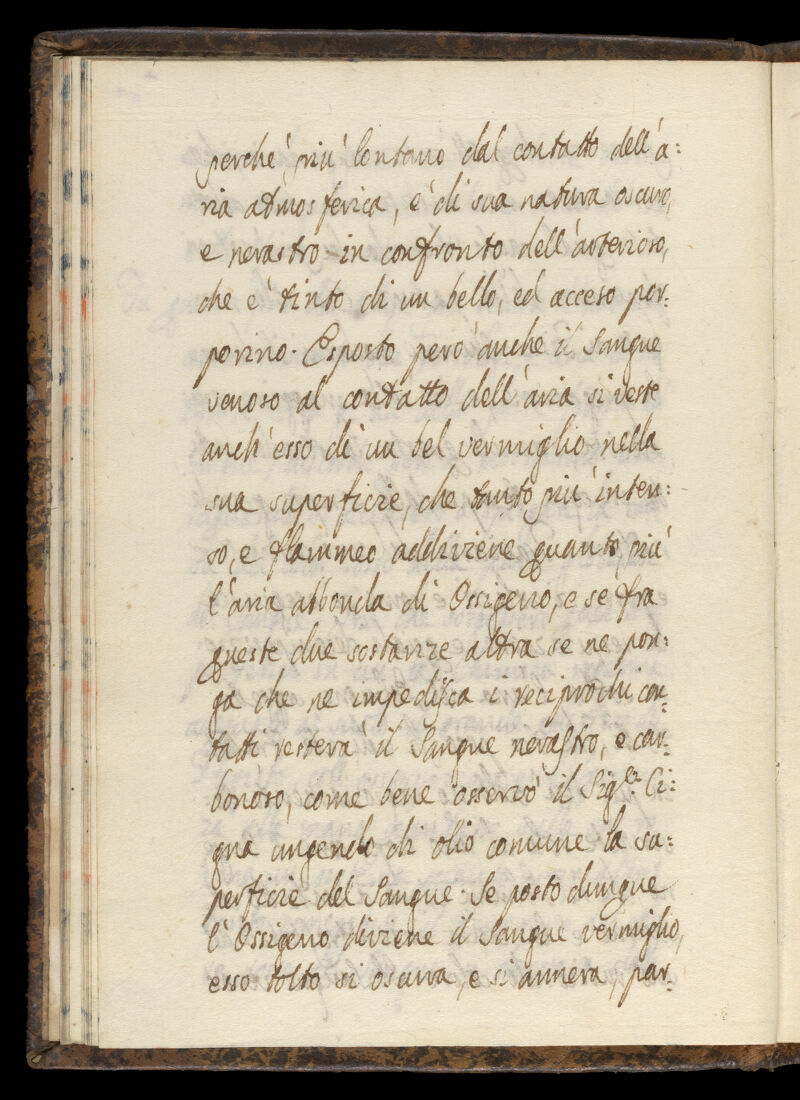 perche' più lontano dal contatto dell'a:
ria atmosferica, e' di sua natura oscuro,
e nerastro in confronto dell'arterioso,
che e' tinto di un bello, ed acceso por:
porino. Esposto pero' anche il Sangue
venoso al contatto dell'aria si veste
anch'esso di un bel vermiglio nella
sua superficie, che tanto più inten:
so, e flammeo addiviene quanto più
l'aria abbonda di Ossigeno, e se fra
queste due sostanze altra se ne pon:
ga che ne impedisca i reciprochi con:
tatti restera' il Sangue nerastro, e car:
bonoso, come bene osservò il Sig.er Ci:
gna ungendo di olio comune la su:
perficie del Sangue. Se posto dunque
l'Ossigeno diviene il Sangue vermiglio,
esso tolto si oscura, e si annera, par: